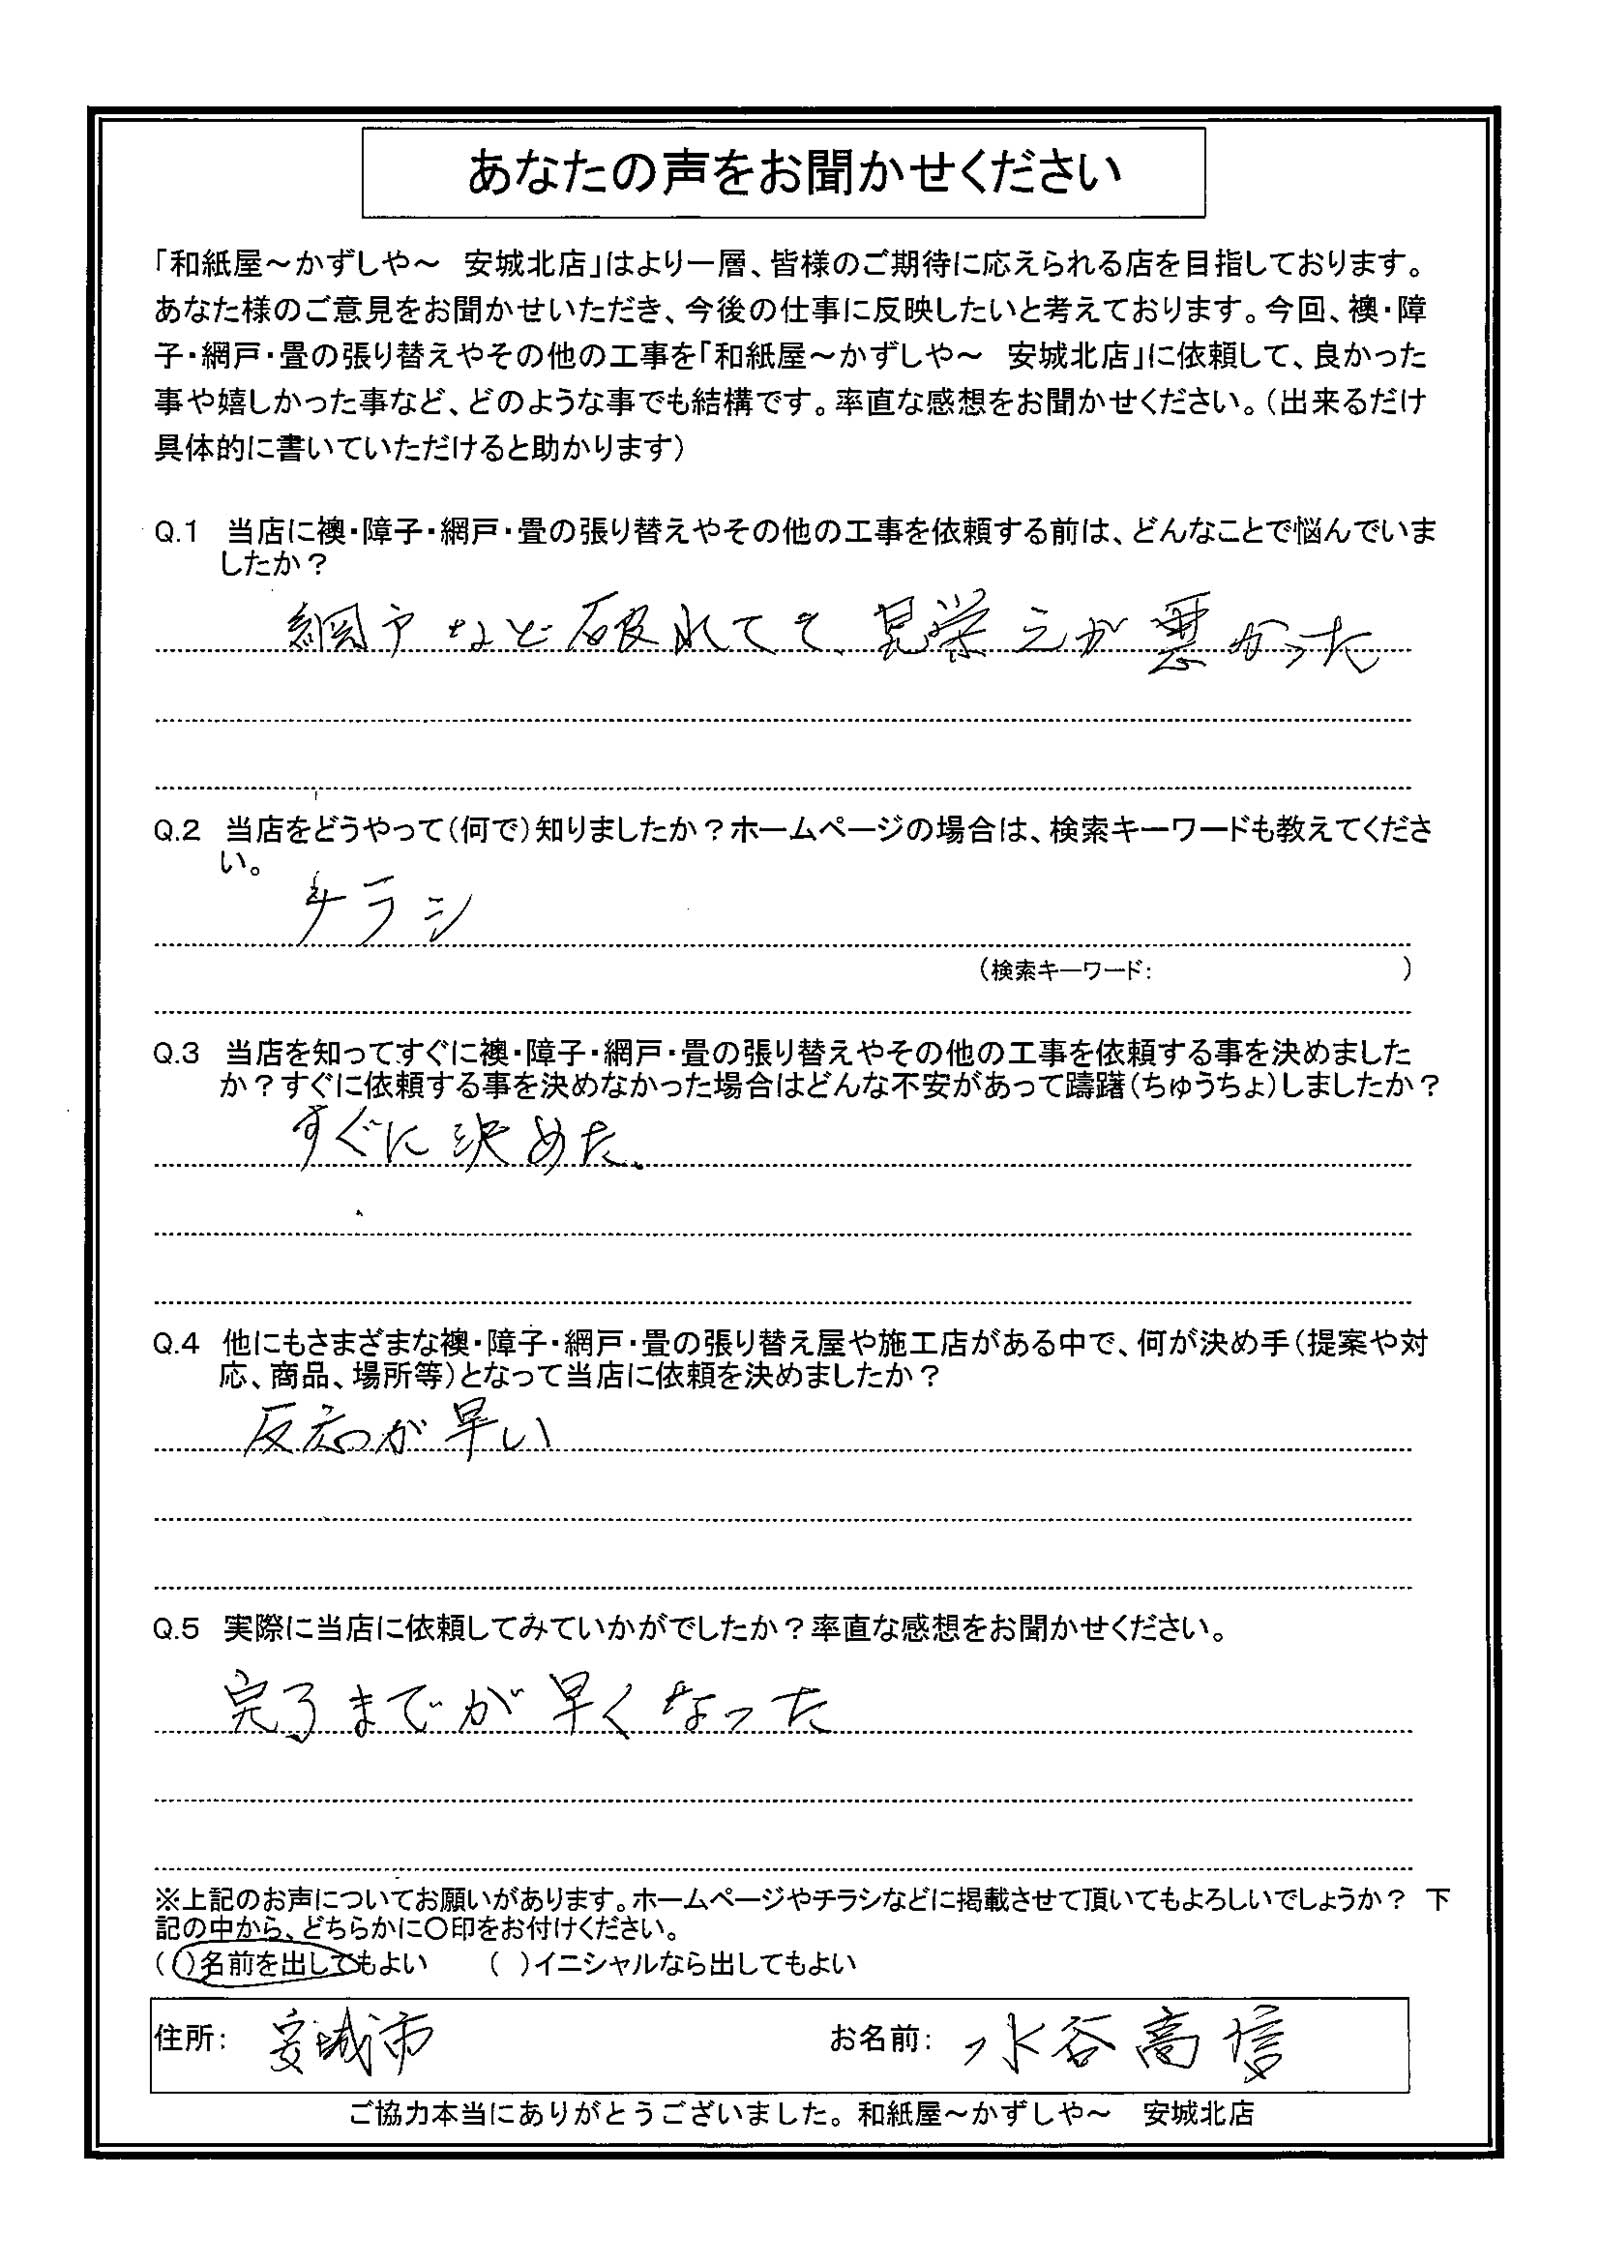 あなたの声をお聞かせください
「和紙屋～かずしや～　安城北店」はより一層、皆様のご期待に応えられる店を目指しております。
あなた様のご意見をお聞かせいただき、今後の仕事に反映したいと考えております。今回、襖・障
子・網戸・畳の張り替えやその他の工事を「和紙屋～かずしや～　安城北店」に依頼して、良かった
事や嬉しかった事など、どのような事でも結構です。率直な感想をお聞かせください。（出来るだけ
具体的に書いていただけると助かります）
Q.1　当店に襖・障子・網戸・畳の張り替えやその他の工事を依頼する前は、どんなことで悩んでいま
したか？
網戸など破れてて、見栄えが悪かった
Q.2　当店をどうやって（何で）知りましたか？ホームページの場合は、検索キーワードも教えてくださ
い。
チラシ
（検索キーワード：　　　　　　　　　　）
Q.3　当店を知ってすぐに襖・障子・網戸・畳の張り替えやその他の工事を依頼する事を決めました
か？すぐに依頼する事を決めなかった場合はどんな不安があって躊躇（ちゅうちょ）しましたか？
すぐに決めた。
Q.4　他にもさまざまな襖・障子・網戸・畳の張り替え屋や施工店がある中で、何が決め手（提案や対
応、商品、場所等）となって当店に依頼を決めましたか？
反応が早い
Q.5　実際に当店に依頼してみていかがでしたか？率直な感想をお聞かせください。
完了までが早くなった
※上記のお声についてお願いがあります。ホームページやチラシなどに掲載させて頂いてもよろしいでしょうか？　下
記の中から、どちらかに〇印をお付けください。
（　）名前を出してもよい　　（　）イニシャルなら出してもよい
住所：　安城市　　お名前：　水谷高信
ご協力本当にありがとうございました。和紙屋～かずしや～　安城北店